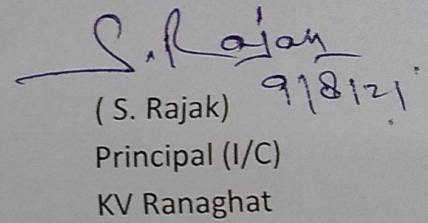 S. Rajak
9/8/21
( S. Rajak)
Principal (I/C)
KV Ranaghat